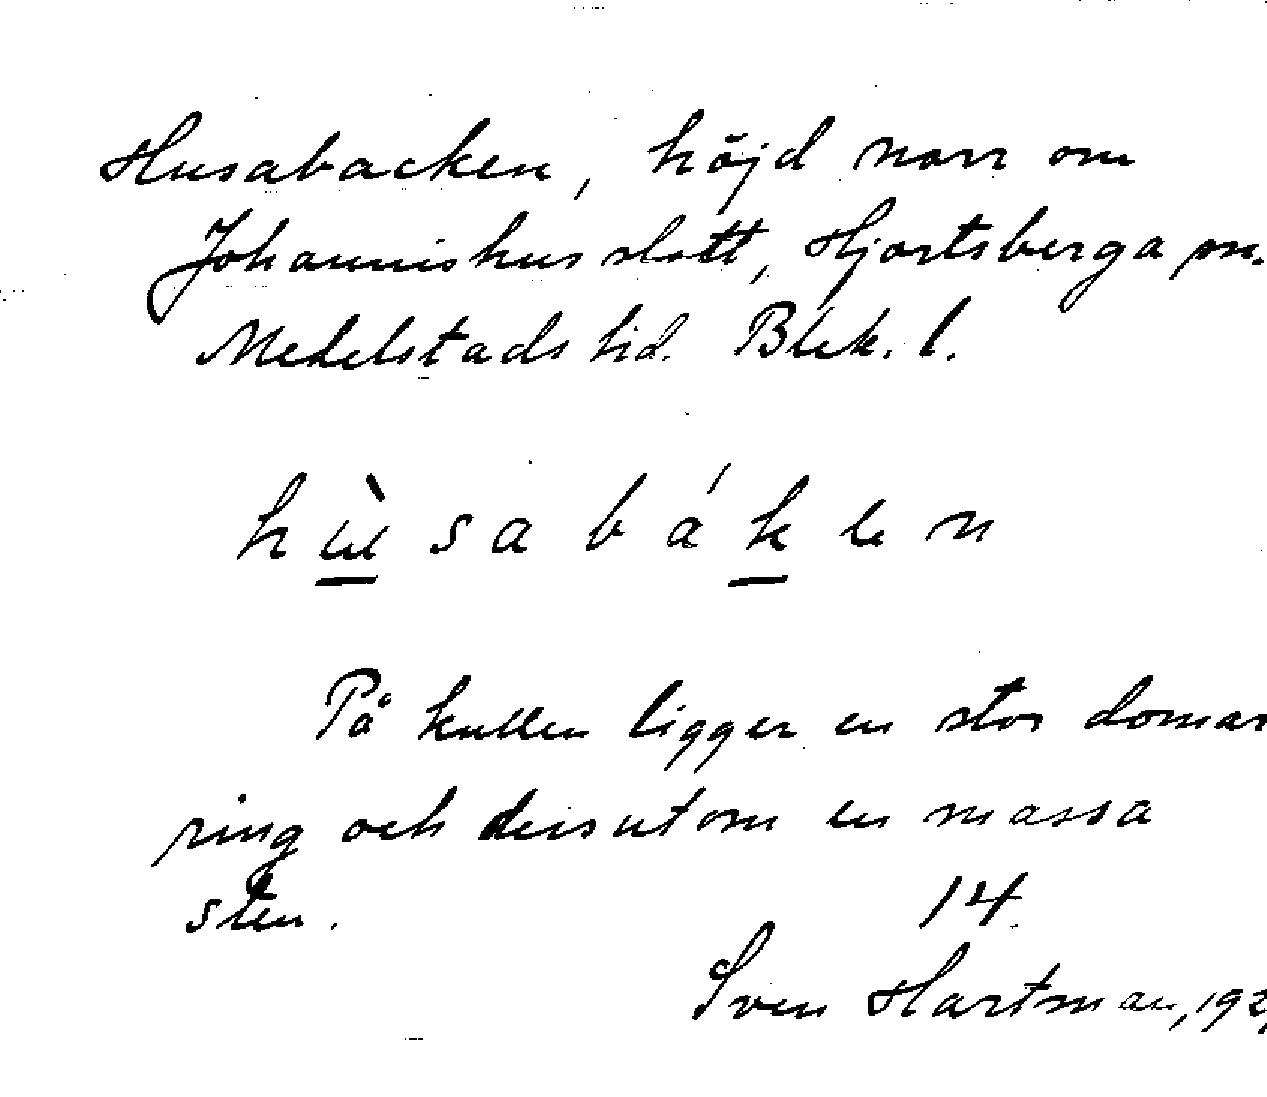 Husabacken, höjd norr om
Johannishus slott, Hjortsberga sn.
Medelstads hd. Blek. l.
hùsabáken
På kullen ligger en stor domar
ring och dessutom en massa
sten.
14.
Sven Hartman, 192